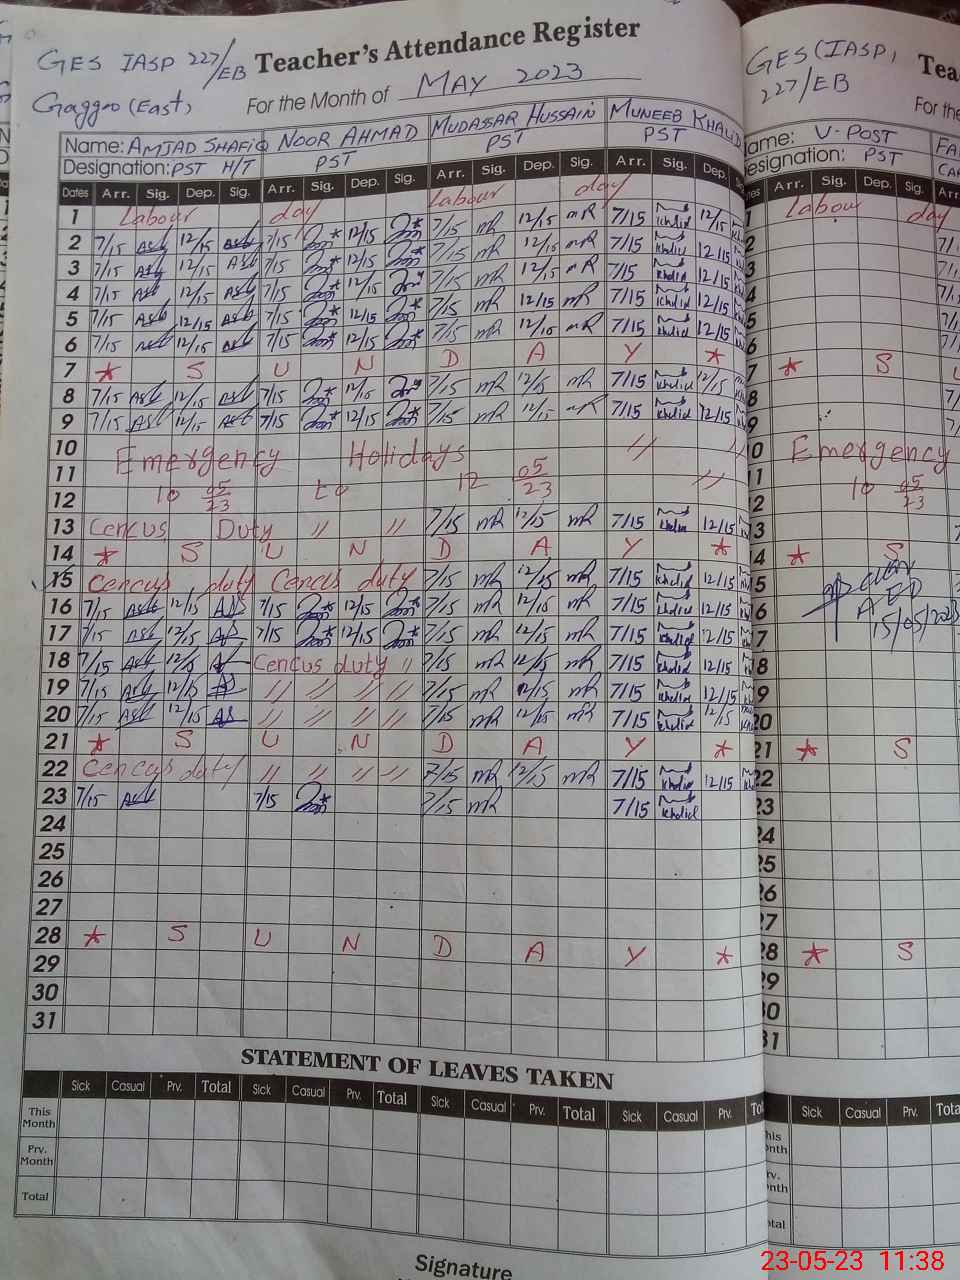 GES IASP 227/EB Teacher's Attendance Register
Gaggoo (East)
For the Month of MAY 2023
Name: AMJAD SHAFIQ NOOR AHMAD MUDASSAR HUSSAIN MUNEEB KHALID
Designation: PST H/T PST PST PST
Dates Arr. Sig. Dep. Sig. Arr. Sig. Dep. Sig. Arr. Sig. Dep. Sig. Arr. Sig. Dep.
1 Labour day Labour day 7/15 Khalid 12/15
2 7/15 12/15 7/15 12/15 7/15 mR 12/15 mR 7/15 Khalid 12/15
3 7/15 12/15 7/15 12/15 7/15 mR 12/15 mR 7/15 Khalid 12/15
4 7/15 12/15 7/15 12/15 7/15 mR 12/15 mR 7/15 Khalid 12/15
5 7/15 12/15 7/15 12/15 7/15 mR 12/15 mR 7/15 Khalid 12/15
6 7/15 12/15 7/15 12/15 7/15 mR 12/15 mR 7/15 Khalid 12/15
7 * S U N D A Y *
8 7/15 12/15 7/15 12/15 7/15 mR 12/15 mR 7/15 Khalid 12/15
9 7/15 12/15 7/15 12/15 7/15 mR 12/15 mR 7/15 Khalid 12/15
10 Emergency Holidays // //
11
12 10 05/23 to 12 05/23 //
13 Cencus Duty // // 7/15 mR 12/15 mR 7/15 Khalid 12/15
14 * S U N D A Y *
15 Cencus duty Cencus duty 7/15 mR 12/15 mR 7/15 Khalid 12/15
16 7/15 12/15 7/15 12/15 7/15 mR 12/15 mR 7/15 Khalid 12/15
17 7/15 12/15 7/15 12/15 7/15 mR 12/15 mR 7/15 Khalid 12/15
18 7/15 12/15 Cencus duty // 7/15 mR 12/15 mR 7/15 Khalid 12/15
19 7/15 12/15 // // // // 7/15 mR 12/15 mR 7/15 Khalid 12/15
20 7/15 12/15 // // // // 7/15 mR 12/15 mR 7/15 Khalid 12/15
21 * S U N D A Y *
22 Cencus duty // // // // 7/15 mR 12/15 mR 7/15 Khalid 12/15
23 7/15 7/15 7/15 mR 7/15 Khalid
24
25
26
27
28 * S U N D A Y *
29
30
31
STATEMENT OF LEAVES TAKEN
Sick Casual Prv. Total Sick Casual Prv. Total Sick Casual Prv. Total Sick Casual Prv.
This Month
Prv. Month
Total
Signature
GES (IASP)
227/EB
For the
Name: V-POST
Designation: PST
Arr. Sig. Dep. Sig.
Labour day
* S
Emergency
10 05/23
* S
AEO
15/05/2023
* S
* S
Sick Casual Prv. Total
23-05-23 11:38